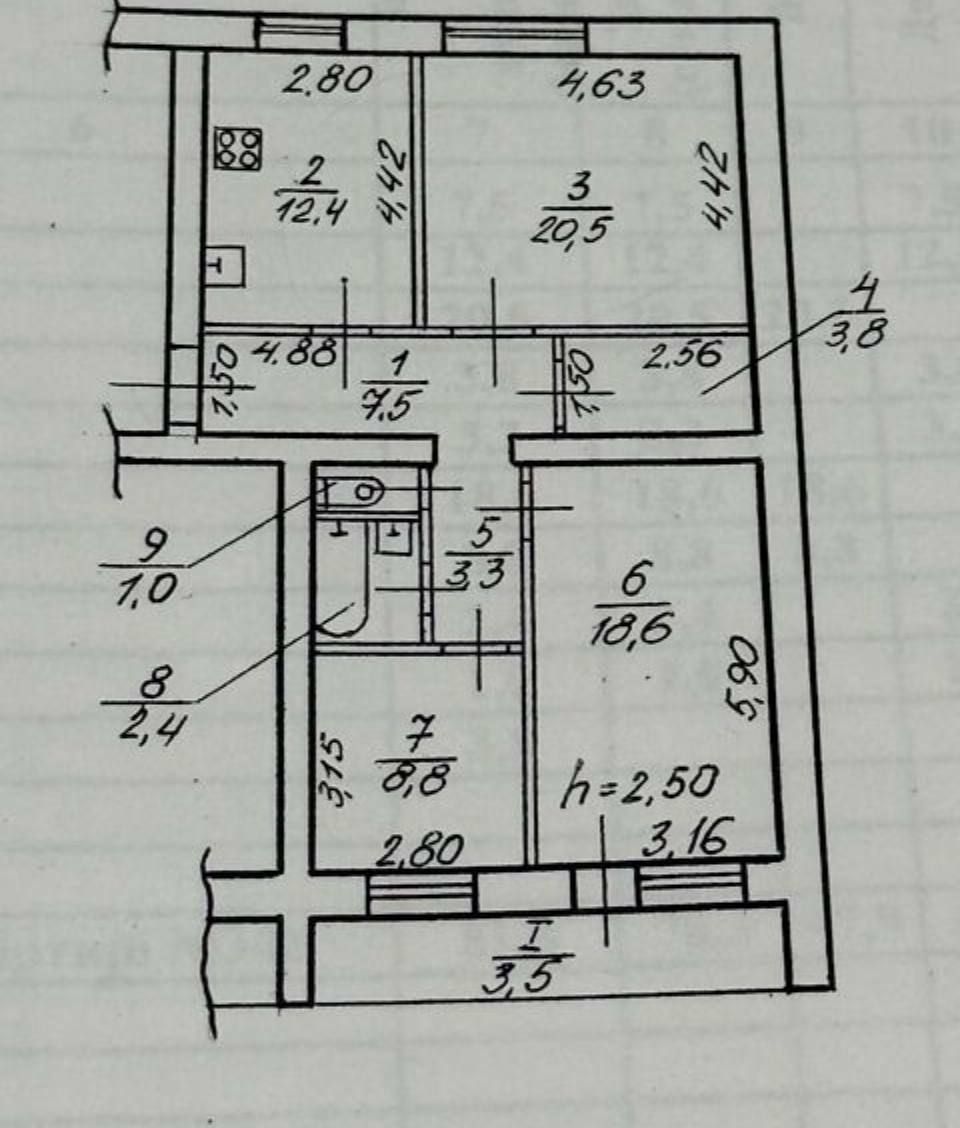 2.80
4,63
2
12.4
4,42
3
20,5
4,42
4
3,8
4.88
1,50
1
7.5
1,50
2.56
9
1,0
5
3,3
6
18,6
8
2,4
5,90
7
8,8
3,15
h=2,50
2,80
3,16
I
3,5